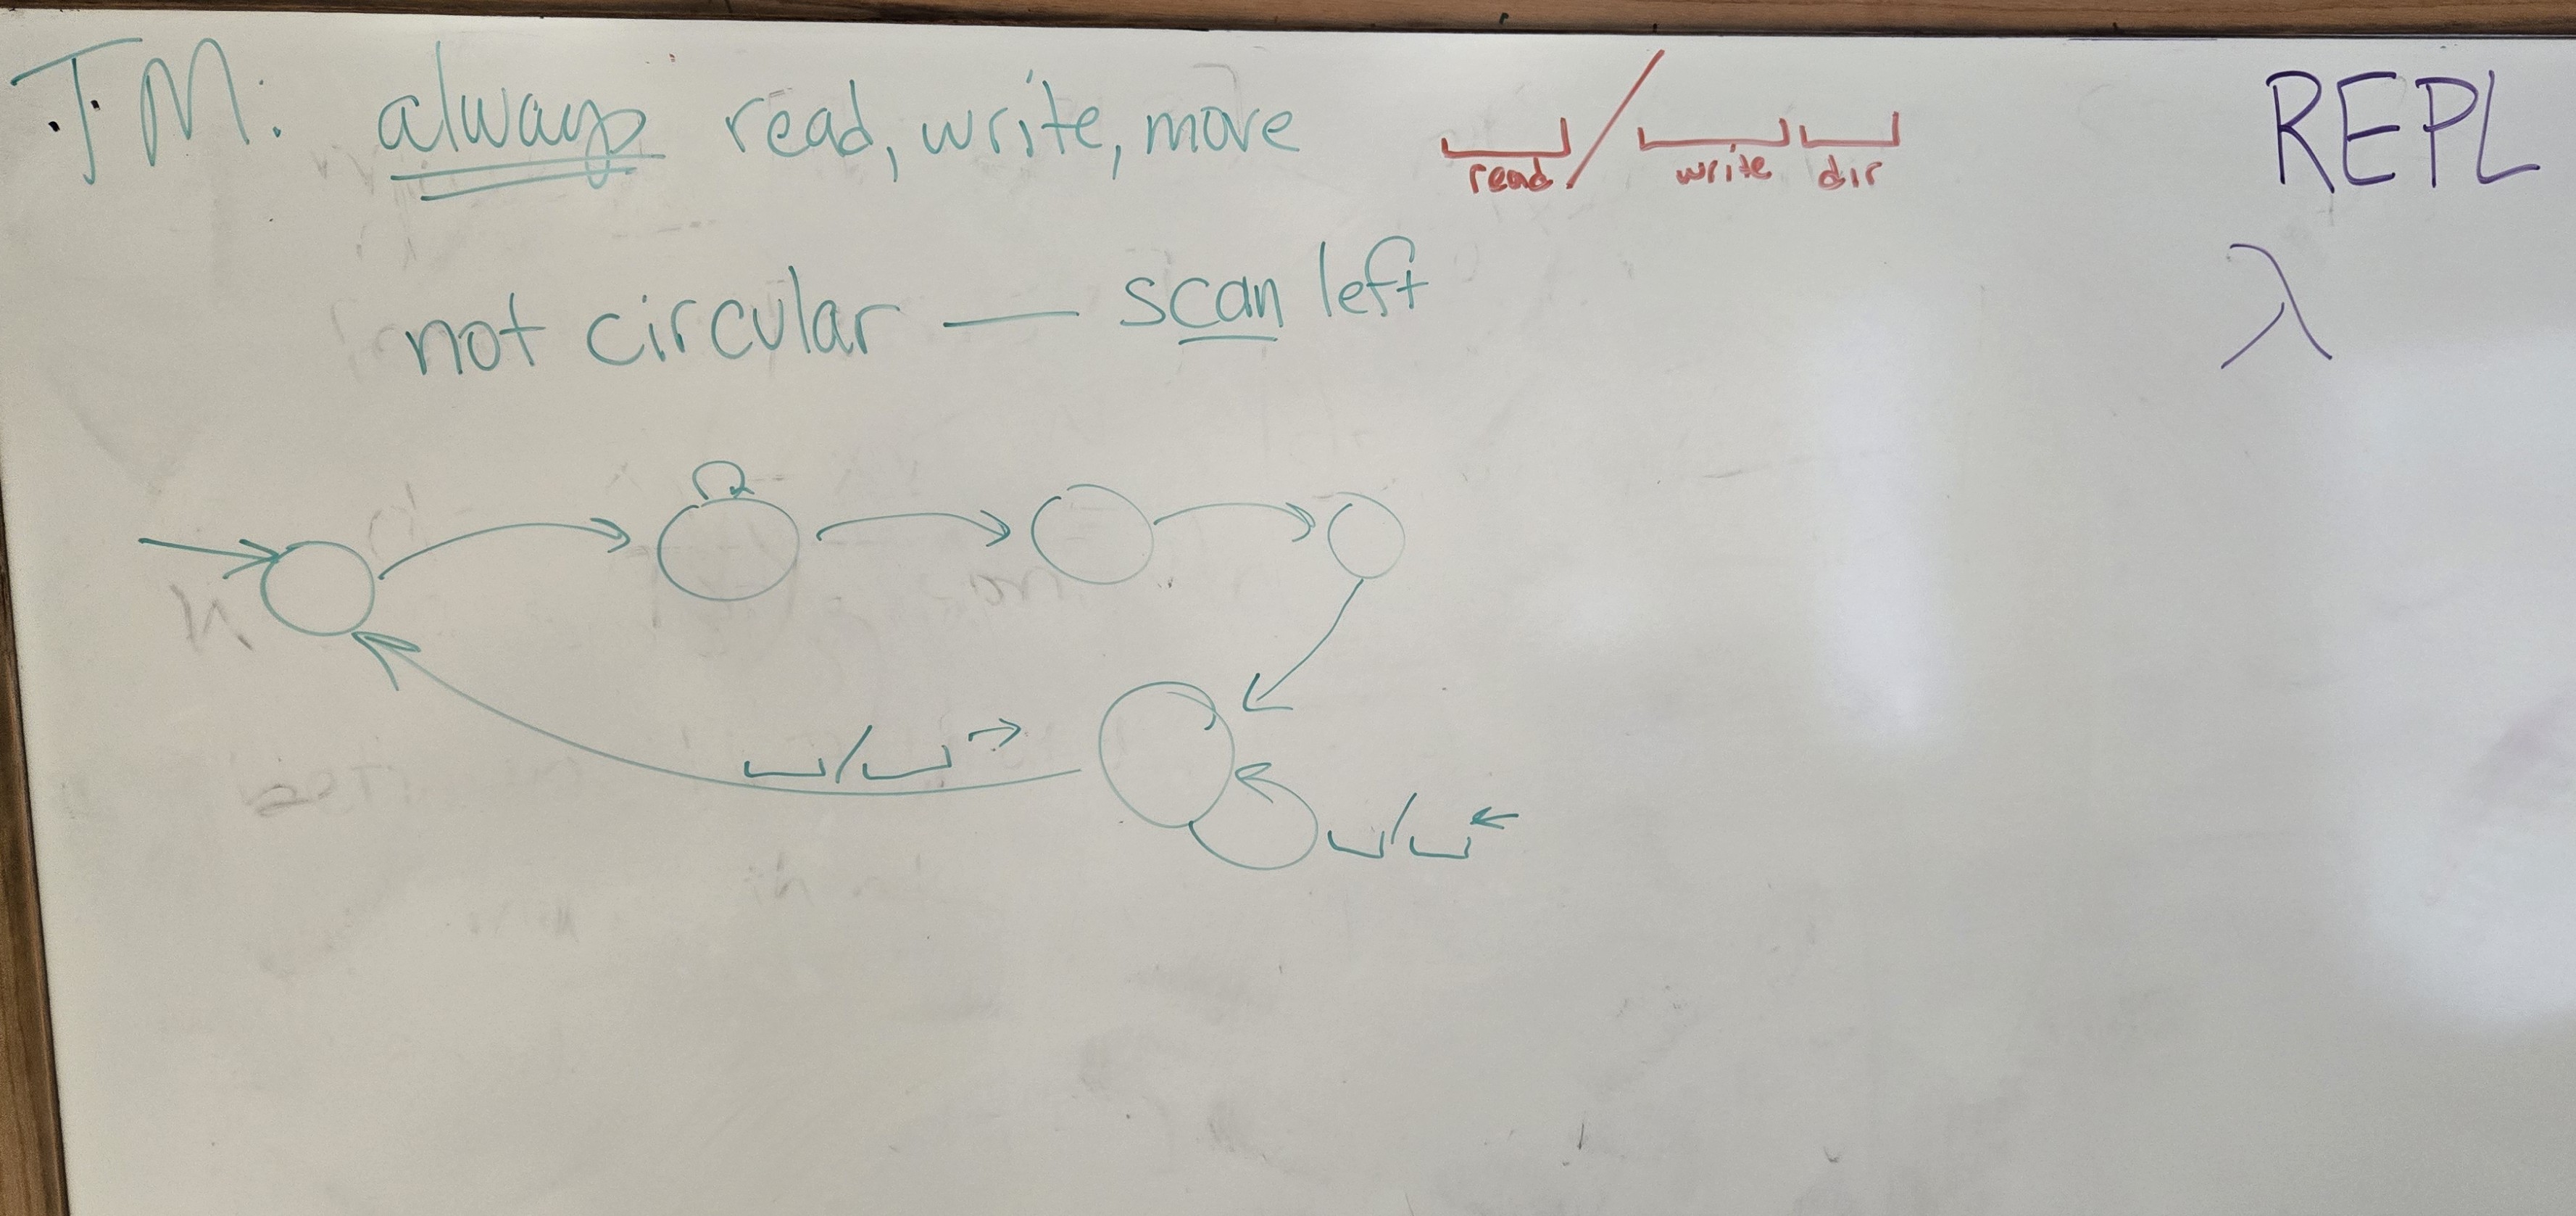 TM: always read, write, move ␣/␣␣ REPL
read write dir
not circular — scan left λ
␣/␣→
␣/␣←